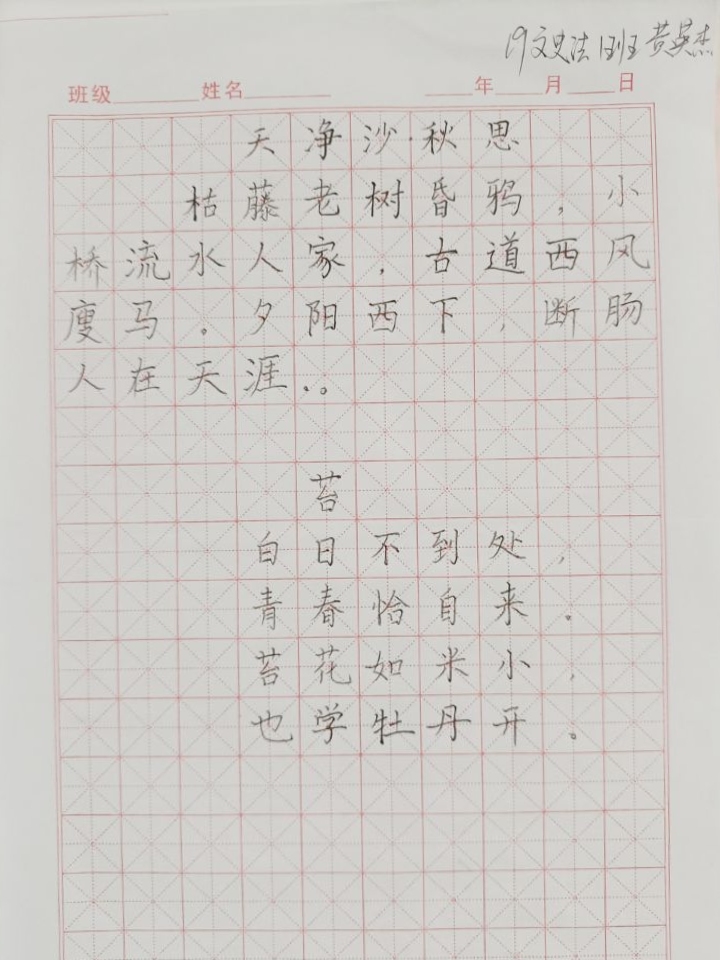 19文史法1班 黄昊杰
班级 姓名 年 月 日
天净沙·秋思
枯藤老树昏鸦，小
桥流水人家，古道西风
瘦马。夕阳西下，断肠
人在天涯.。
苔
白日不到处，
青春恰自来。
苔花如米小，
也学牡丹开。